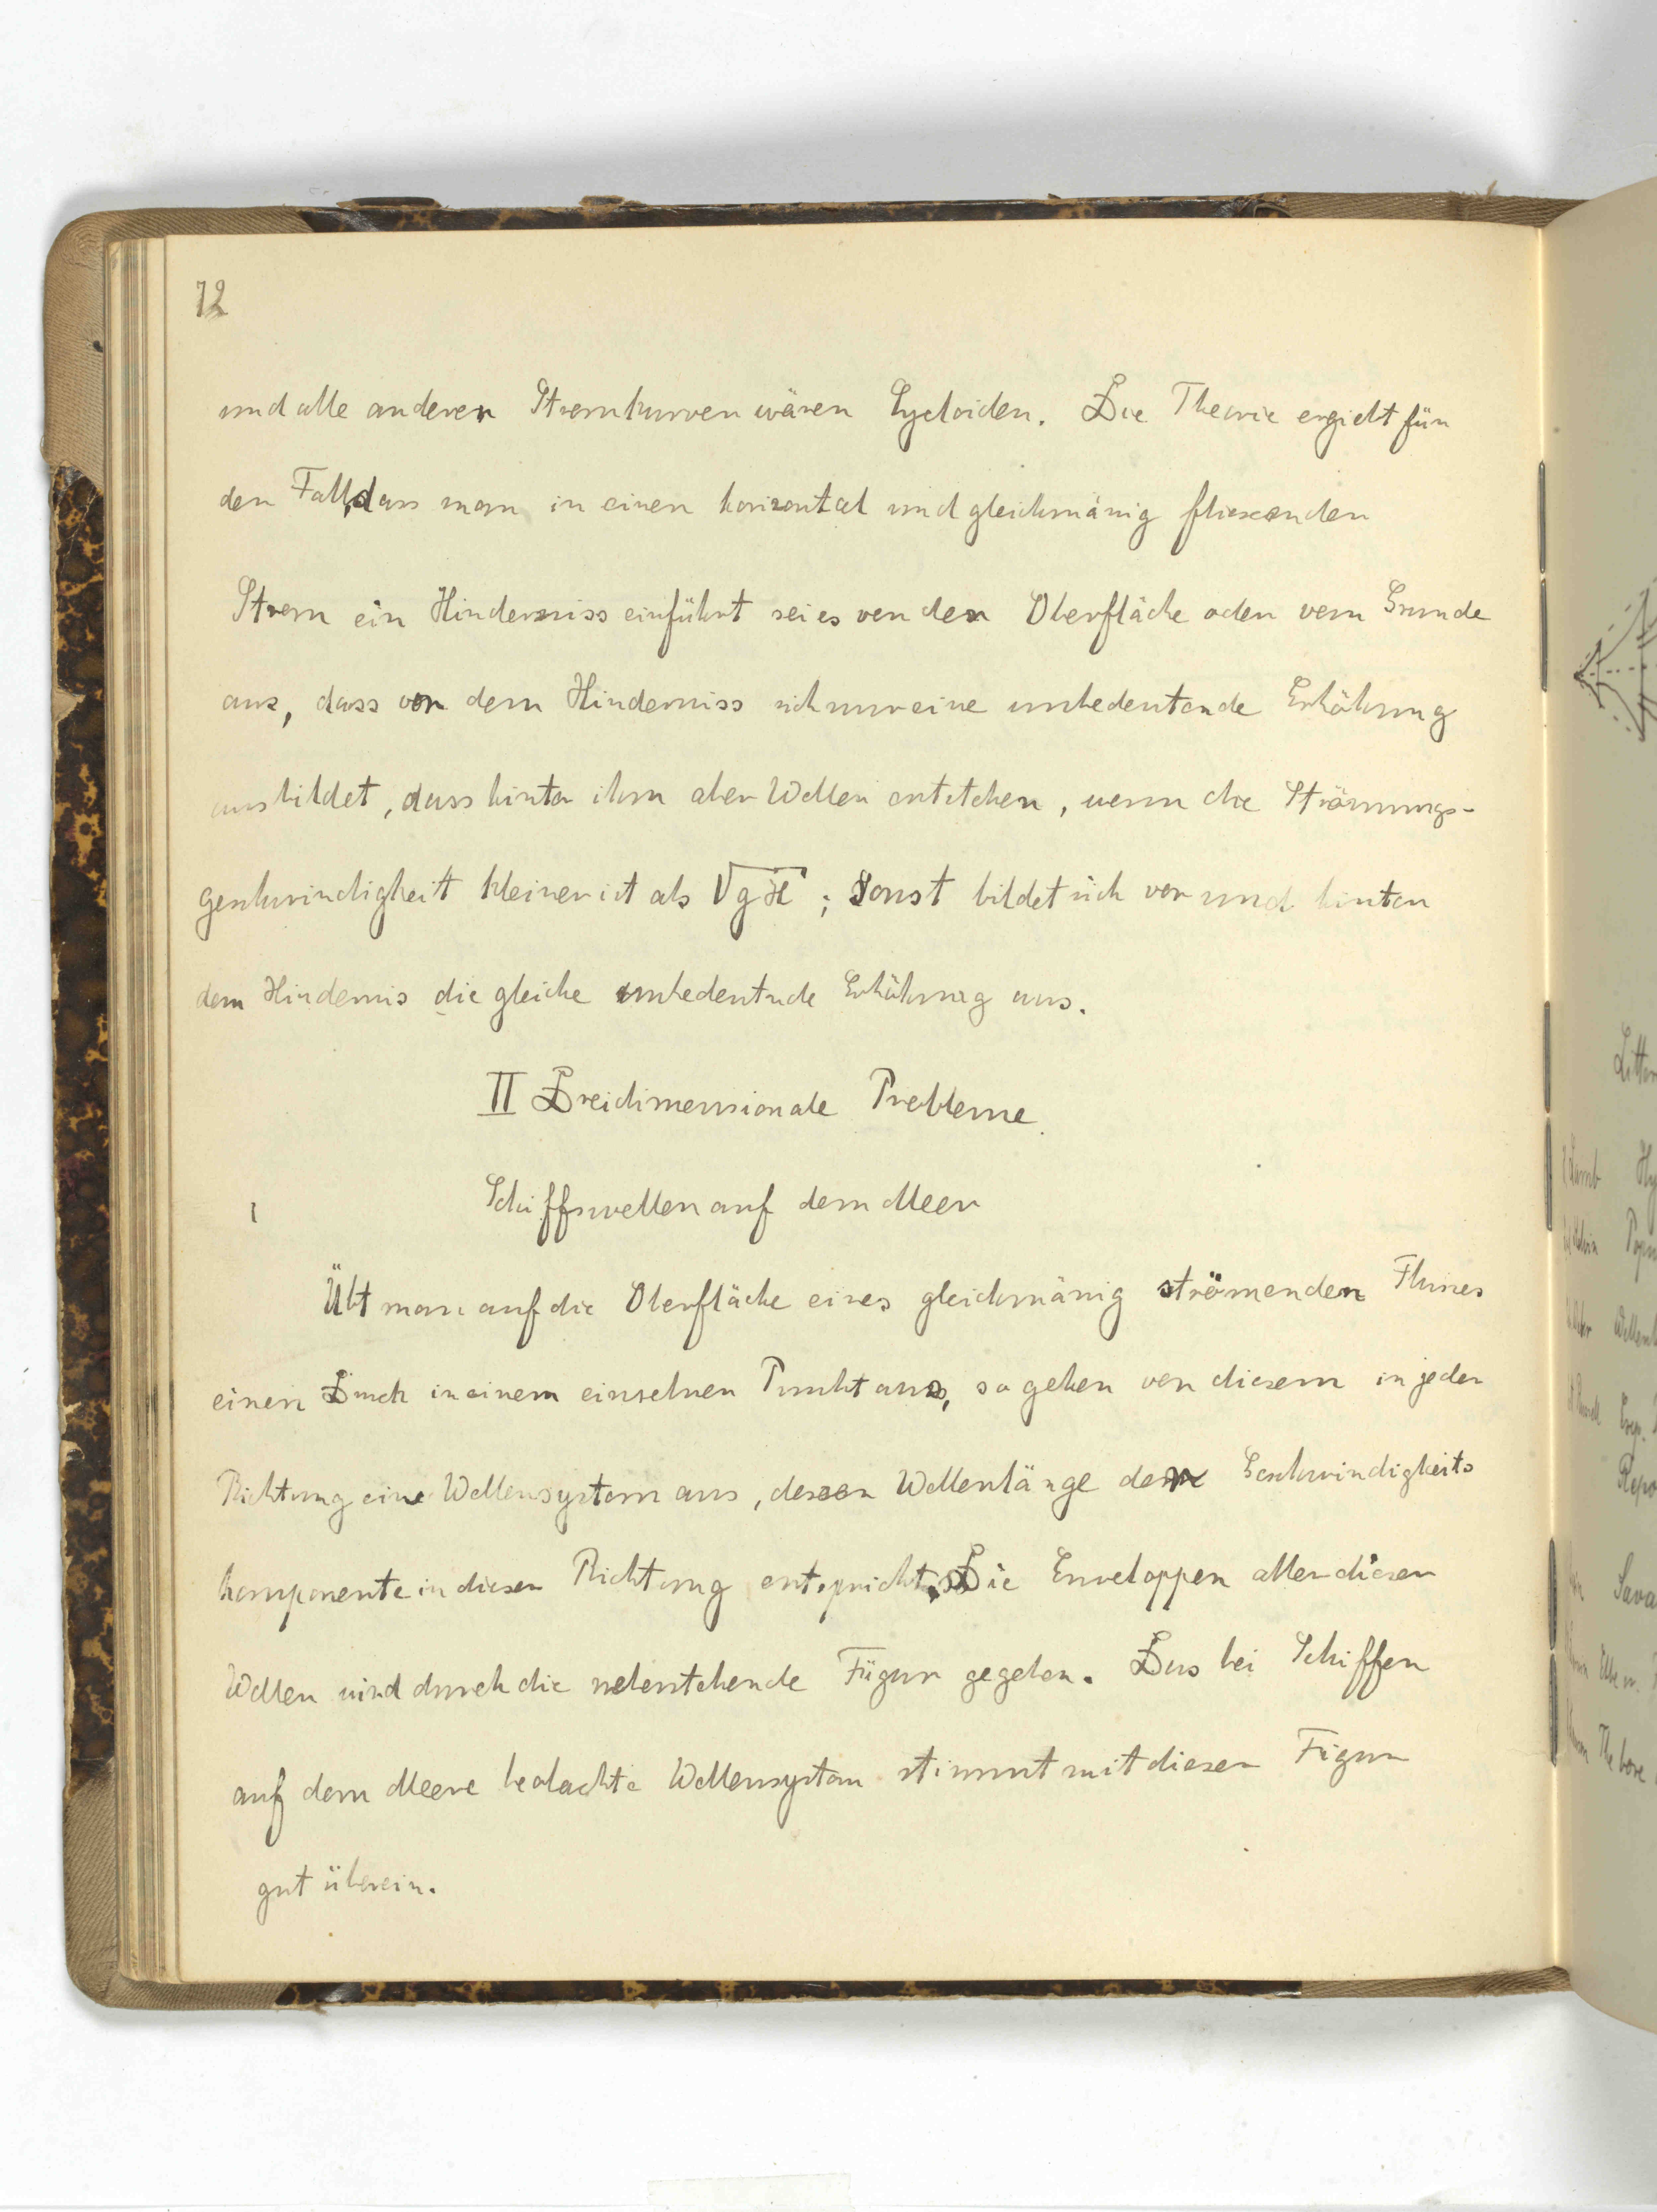 12
und alle anderen Stromkurven wären Cycloiden. Die Theorie ergiebt für
den Fall, dass man in einen horizontal und gleichmässig fliessenden
Strom ein Hinderniss einführt sei es von der Oberfläche oder vom Grunde
aus, dass vor dem Hinderniss sich nur eine unbedeutende Erhöhung
ausbildet, dass hinter ihm aber Wellen entstehen, wenn die Strömungs-
geschwindigkeit kleiner ist als √gH ; sonst bildet sich vor und hinter
dem Hindernis die gleiche unbedeutnde Erhöhung aus.
II Dreidimensionale Probleme.
Schiffswellen auf dem Meer
Übt man auf die Oberfläche eines gleichmässig strömenden Flusses
einen Druck in einem einzelnen Punkt aus, so gehen von diesem in jeder
Richtung eine Wellensystem aus, dessen Wellenlänge der Geschwindigkeits
komponente in dieser Richtung entspricht. Die Enveloppen aller dieser
Wellen wird durch die nebenstehende Figur gegeben. Das bei Schiffen
auf dem Meere beobachte Wellensystem stimmt mit dieser Figur
gut überein.
Lamb
Kelvin
Sava
The bore